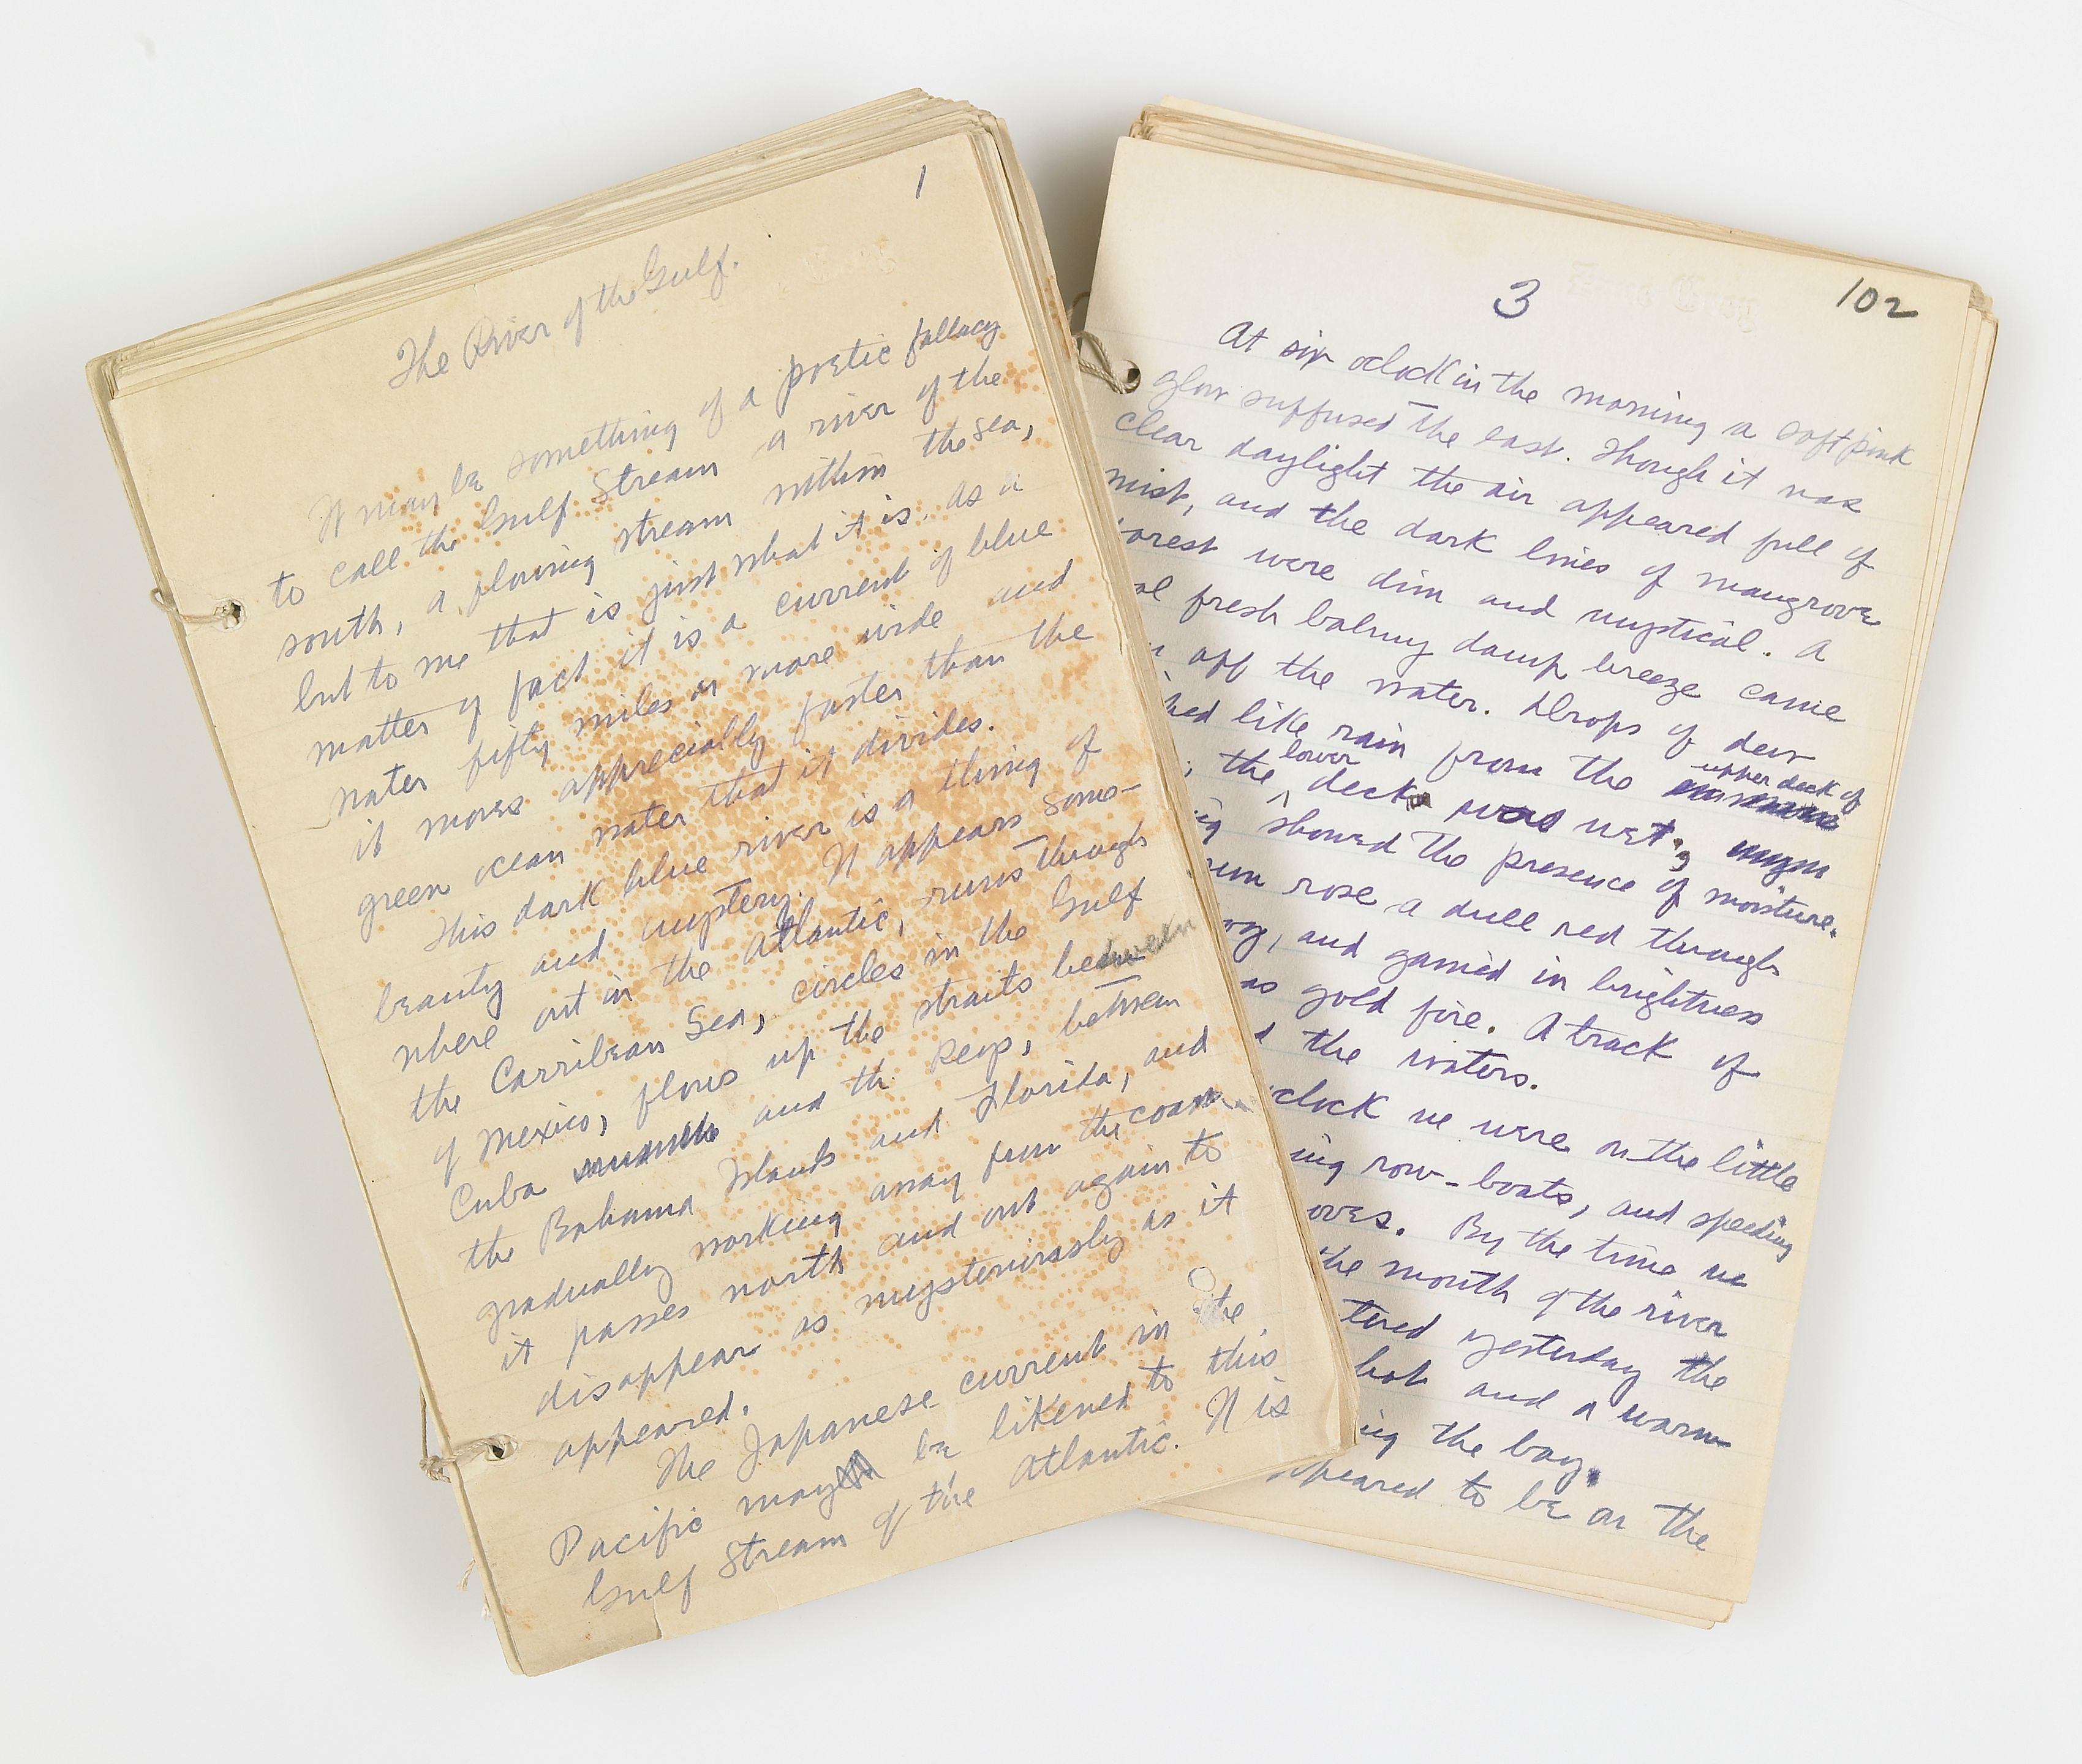 1
The River of the Gulf.
It may be something of a poetic fallacy
to call the Gulf Stream a river of the
south, a flowing stream within the sea,
but to me that is just what it is. As a
matter of fact it is a current of blue
water fifty miles or more wide and
it moves appreciably faster than the
green ocean water that it divides.
This dark blue river is a thing of
beauty and mystery. It appears some-
where out in the Atlantic, runs through
the Carribean Sea, circles in the Gulf
of Mexico, flows up the straits between
Cuba and the Keys, between
the Bahama Islands and Florida, and
gradually working away from the coast
it passes north and out again to
disappear as mysteriously as it
appeared.
The Japanese current in the
Pacific may be likened to this
Gulf Stream of the Atlantic. It is
102
3
At six oclock in the morning a soft pink
glow suffused the east. Though it was
clear daylight the air appeared full of
mist, and the dark lines of mangrove
forest were dim and mystical. A
fresh balmy damp breeze came
off the water. Drops of dew
like rain from the upper deck of
the lower deck was wet,
showed the presence of moisture.
rose a dull red through
and gained in brightness
as gold fire. A track of
the waters.
clock we were on the little
ing row-boats, and speeding
oves. By the time we
the mouth of the river
tered yesterday the
hot and a warm
ing the bay.
peared to be on the